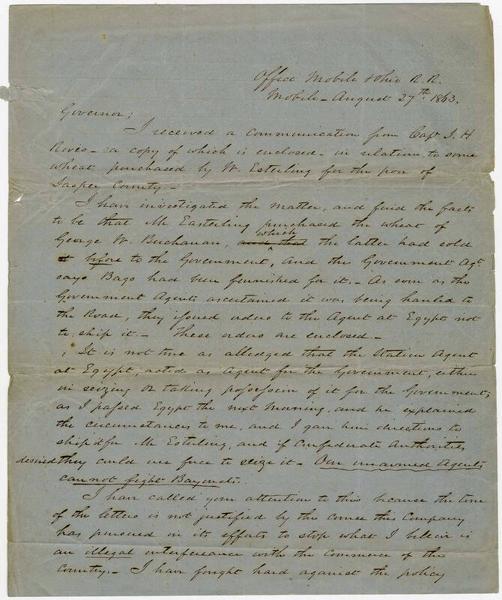 Office Mobile & Ohio R.R.
Mobile - August 27th 1863.
Governor;
I received a communication from Capt J. H
Roves - a copy of which is enclosed - in relation to some
wheat purchased by W. Esterling for the poor of
Jasper County. -
I have investigated the matter, and find the facts
to be that Mr Easterling purchased the wheat of
George W. Buchanan, which the latter had sold
before to the Government, and the Government Agt
says Bags had been furnished for it. - As soon as the
Government Agents ascertained it was being hauled to
the Road, they issued orders to the Agent at Egypt not
to ship it - These orders are enclosed -
It is not true as alledged that the Station Agent
at Egypt, acted as Agent for the Government, either
in seizing or taking possession of it for the Government,
as I passed Egypt the next morning, and he explained
the circumstances to me, and I gave him directions to
ship it for Mr Esterling, and if Confederate Authorities
desired they could use force to seize it - Our unarmed Agents
cannot fight Bayonets.
I have called your attention to this because the tone
of the letters is not justified by the course this Company
has pursued in its efforts to stop what I believe is
an illegal interference with the Commerce of the
Country. - I have fought hard against the policy